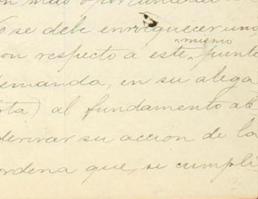 se debe enriquecer uno
con respecto a este puente
demanda, en su alega
al fundamento de
derivar su accion de la
ordena que, si cumpli